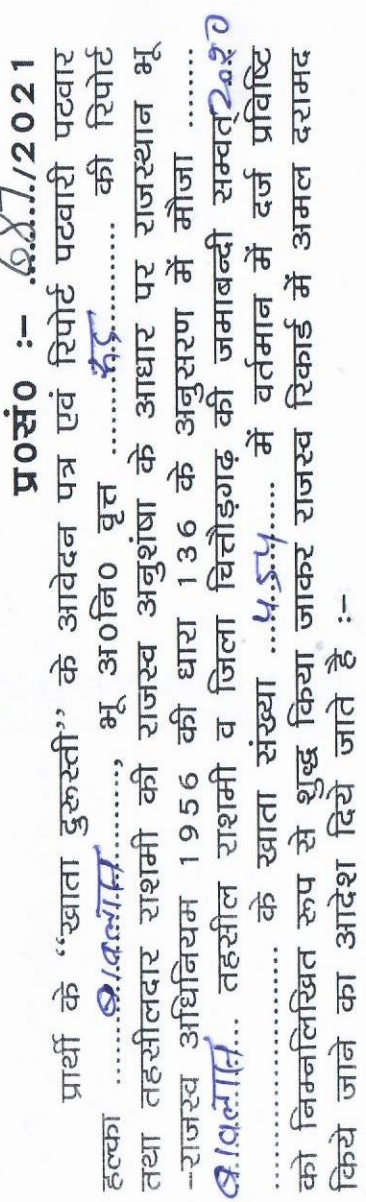 प्र०सं० :- 687/2021
प्रार्थी के “खाता दुरुस्ती” के आवेदन पत्र एवं रिपोर्ट पटवारी पटवार
हल्का ................, भू अ०नि० वृत्त ................ की रिपोर्ट
तथा तहसीलदार राशमी की राजस्व अनुशंषा के आधार पर राजस्थान भू
-राजस्व अधिनियम 1956 की धारा 136 के अनुसरण में मौजा ........
... तहसील राशमी व जिला चित्तौड़गढ़ की जमाबन्दी सम्वत् 2080
................ के खाता संख्या ...454... में वर्तमान में दर्ज प्रविष्टि
को निम्नलिखित रूप से शुद्ध किया जाकर राजस्व रिकार्ड में अमल दरामद
किये जाने का आदेश दिये जाते है :-